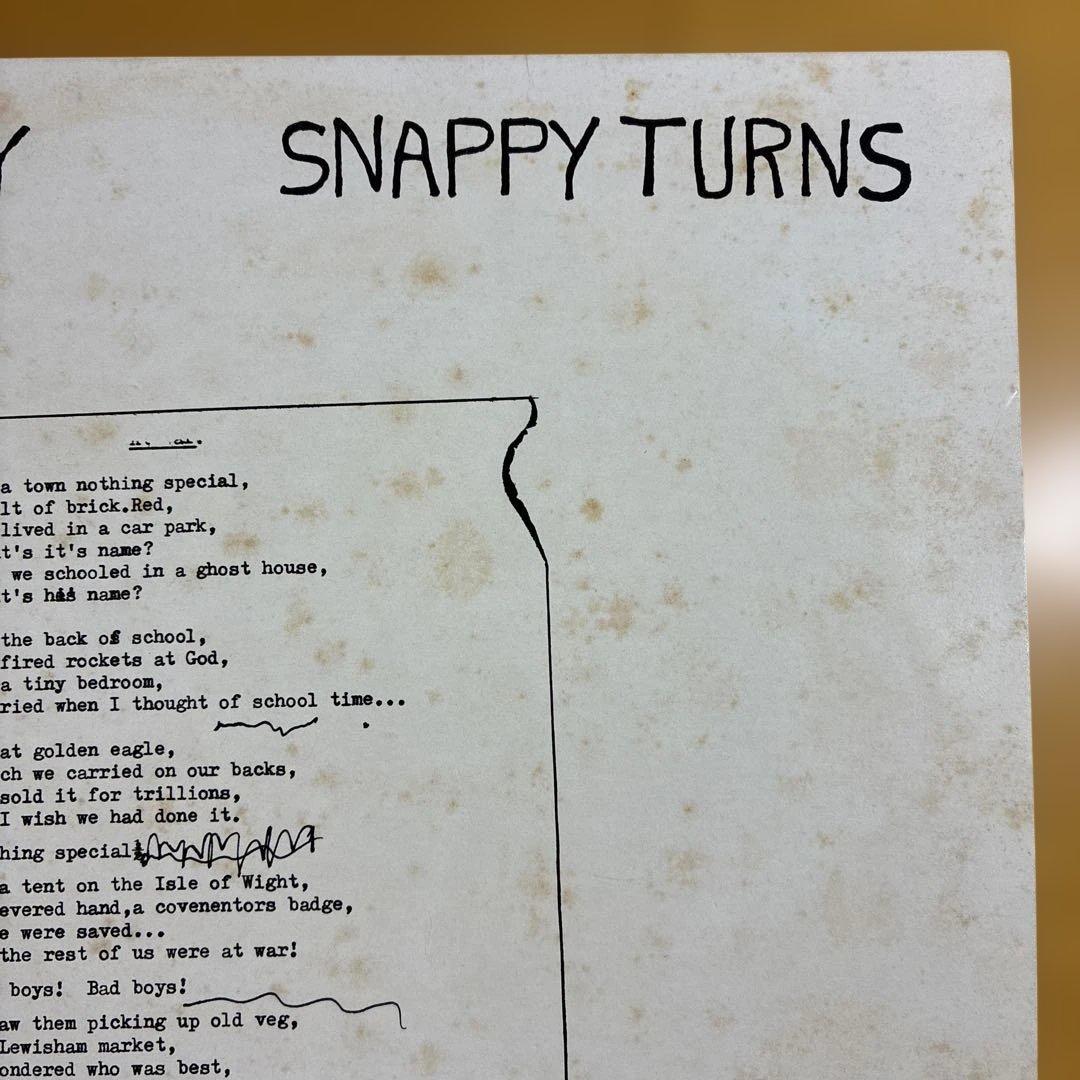 Y SNAPPY TURNS
a town nothing special,
lt of brick.Red,
lived in a car park,
t's it's name?
we schooled in a ghost house,
t's his name?
the back of school,
fired rockets at God,
a tiny bedroom,
ried when I thought of school time...
at golden eagle,
ch we carried on our backs,
sold it for trillions,
I wish we had done it.
hing special
a tent on the Isle of Wight,
evered hand,a covenentors badge,
e were saved...
the rest of us were at war!
boys! Bad boys!
aw them picking up old veg,
Lewisham market,
ondered who was best,